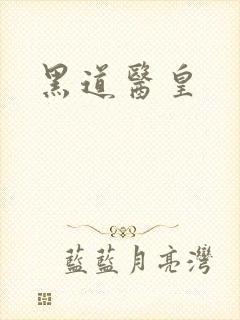 黑道醫皇
藍藍月亮灣